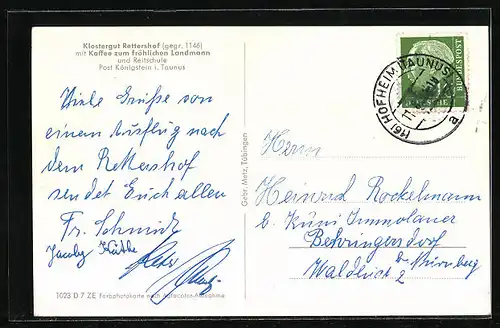 Klostergut Rettershof (gegr. 1146)
mit Kaffee zum fröhlichen Landmann
und Reitschule
Post Königstein i. Taunus
Viele Grüße von
einem Ausflug nach
dem Rettershof
sendet Euch allen
Fr. Schmidt
Jacoby Käthe
1023 D 7 ZE Farbphotokarte nach Agfacolor-Aufnahme
Gebr. Metz, Tübingen
(16) HOFHEIM (TAUNUS)
a
DEUTSCHE
BUNDESPOST
Herrn
Heinrich Rockelmann
b. Küni Immolauer
Behringersdorf
b. Nürnberg
Waldlust 2